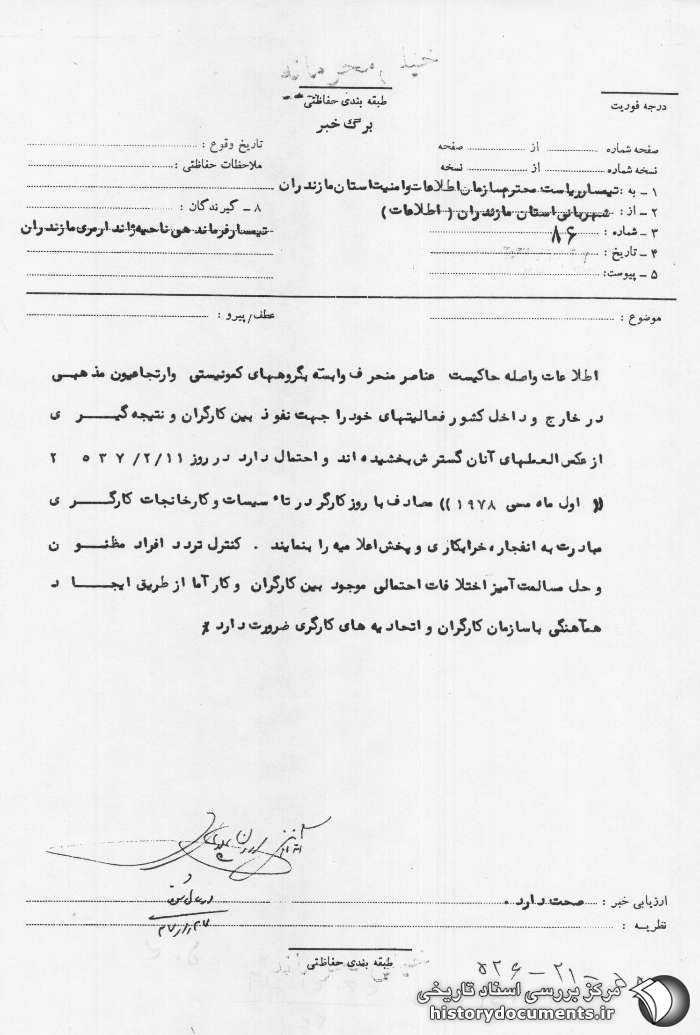 خیلی محرمانه
طبقه بندی حفاظتی
درجه فوریت
برگ خبر
صفحه شماره ............ از ............ صفحه
تاریخ وقوع :
نسخه شماره ............ از ............ نسخه
ملاحظات حفاظتی :
۱ ـ به : تیمسار ریاست محترم سازمان اطلاعات و امنیت استان مازندران
۲ ـ از : شهربانی استان مازندران ( اطلاعات )
۸ ـ گیرندگان :
۳ ـ شماره : ۸۶
تیمسار فرماندهی ناحیه ژاندارمری مازندران
۴ ـ تاریخ :
۵ ـ پیوست:
موضوع :
عطف/پیرو :
اطلاعات واصله حاکیست عناصر منحرف وابسته بگروههای کمونیستی وارتجاعیون مذهبی
در خارج و داخل کشور فعالیتهای خود را جهت نفوذ بین کارگران و نتیجه گیــری
از عکس العملهای آنان گسترش بخشیده اند و احتمال دارد در روز ۲۵۳۷/۲/۱۱
(( اول ماه می ۱۹۷۸ )) مصادف با روز کارگر در تاءسیسات و کارخانجات کارگــری
مبادرت به انفجار، خرابکاری و پخش اعلامیه را بنمایند . کنترل تردد افراد مظنــون
و حل مسالمت آمیز اختلافات احتمالی موجود بین کارگران و کارآما از طریق ایجــاد
هم‌آهنگی با سازمان کارگران و اتحادیه های کارگری ضرورت دارد ٪
ارزیابی خبر : صحت دارد .
نظریه :
طبقه بندی حفاظتی
مرکز بررسی اسناد تاریخی
historydocuments.ir